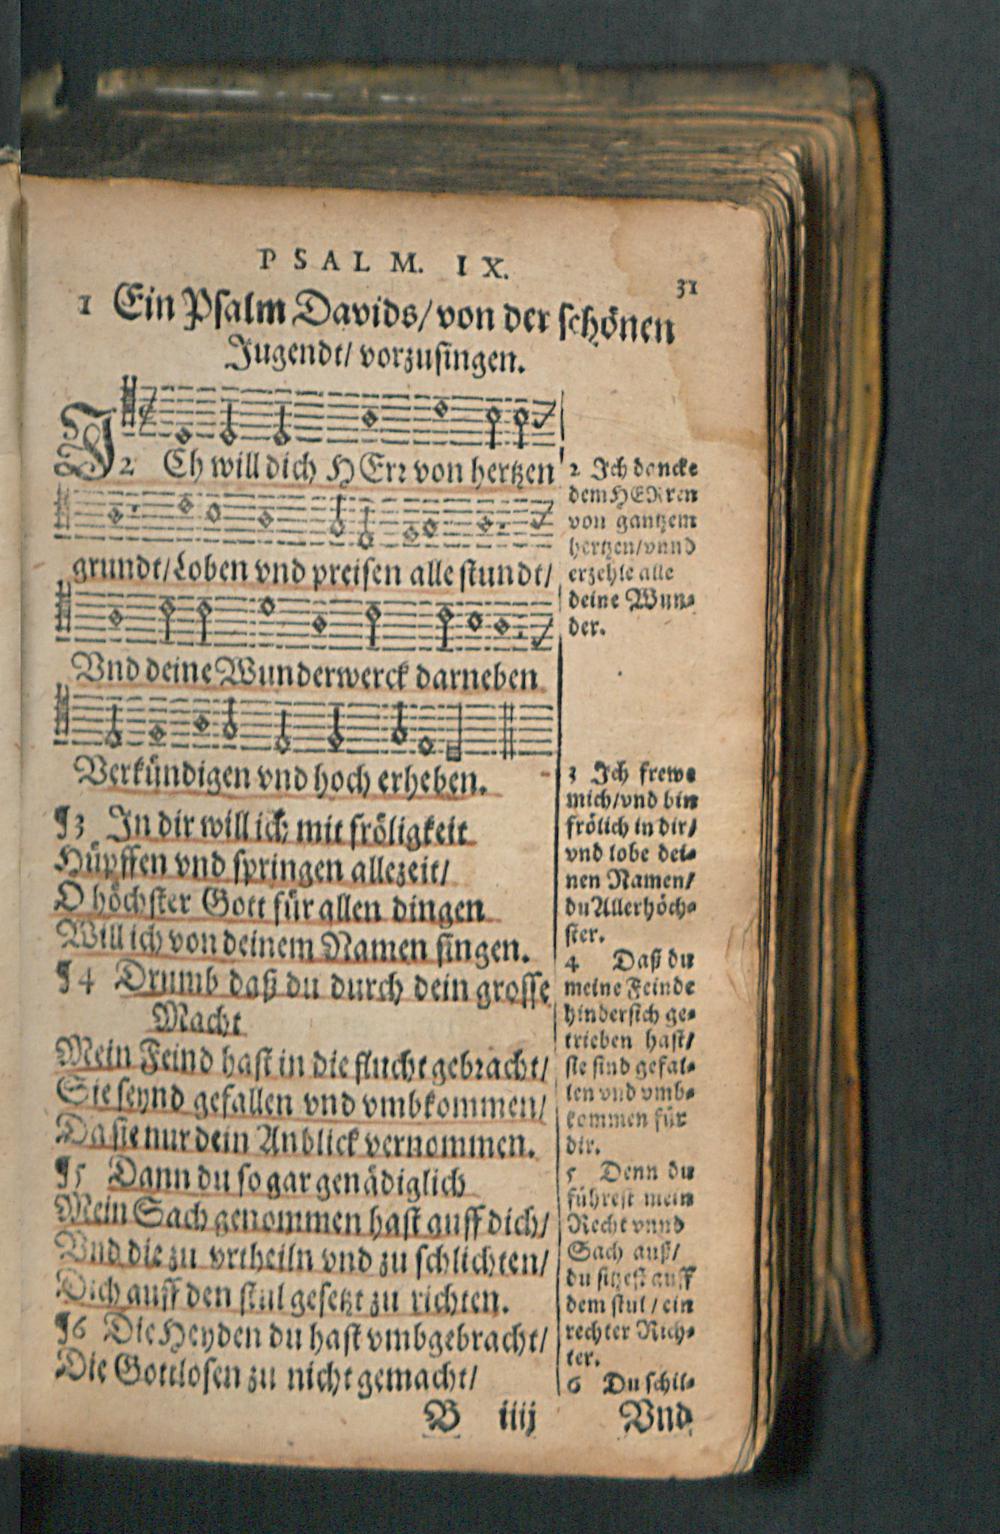 PSALM. IX.
31
1 Ein Psalm Davids/ von der schönen
Jugendt/ vorzusingen.
2 ICh will dich HErr von hertzen
grundt/ Loben vnd preisen alle stundt/
Vnd deine Wunderwerck darneben
Verkündigen vnd hoch erheben.
¶3 In dir will ich mit fröligkeit
Hüpffen vnd springen allezeit/
O höchster Gott für allen dingen
Will ich von deinem Namen singen.
¶4 Drumb daß du durch dein grosse
Macht
Mein Feind hast in die flucht gebracht/
Sie seynd gefallen vnd vmbkommen/
Da sie nur dein Anblick vernommen.
¶5 Dann du so gar genädiglich
Mein Sach genommen hast auff dich/
Vnd die zu vrtheiln vnd zu schlichten/
Dich auff den stul gesetzt zu richten.
¶6 Die Heyden du hast vmbgebracht/
Die Gottlosen zu nicht gemacht/
2 Ich dancke
dem HERren
von gantzem
hertzen/ vnnd
erzehle alle
deine Wun-
der.
3 Ich frewe
mich/ vnd bin
frölich in dir/
vnd lobe dei-
nen Namen/
du Allerhöch-
ster.
4 Daß du
meine Feinde
hindersich ge-
trieben hast/
sie sind gefal-
len vnd vmb-
kommen für
dir.
5 Denn du
führest mein
Recht vnnd
Sach auß/
du sitzest auff
dem stul/ ein
rechter Rich-
ter.
6 Du schil-
B iiij
Vnd